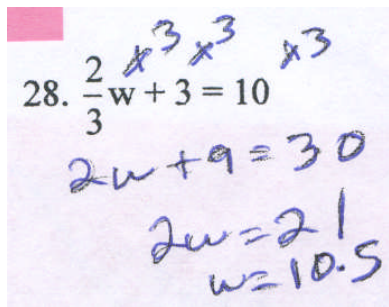 x3 x3 x3
28. 2/3 w + 3 = 10
2w + 9 = 30
2w = 21
w = 10.5